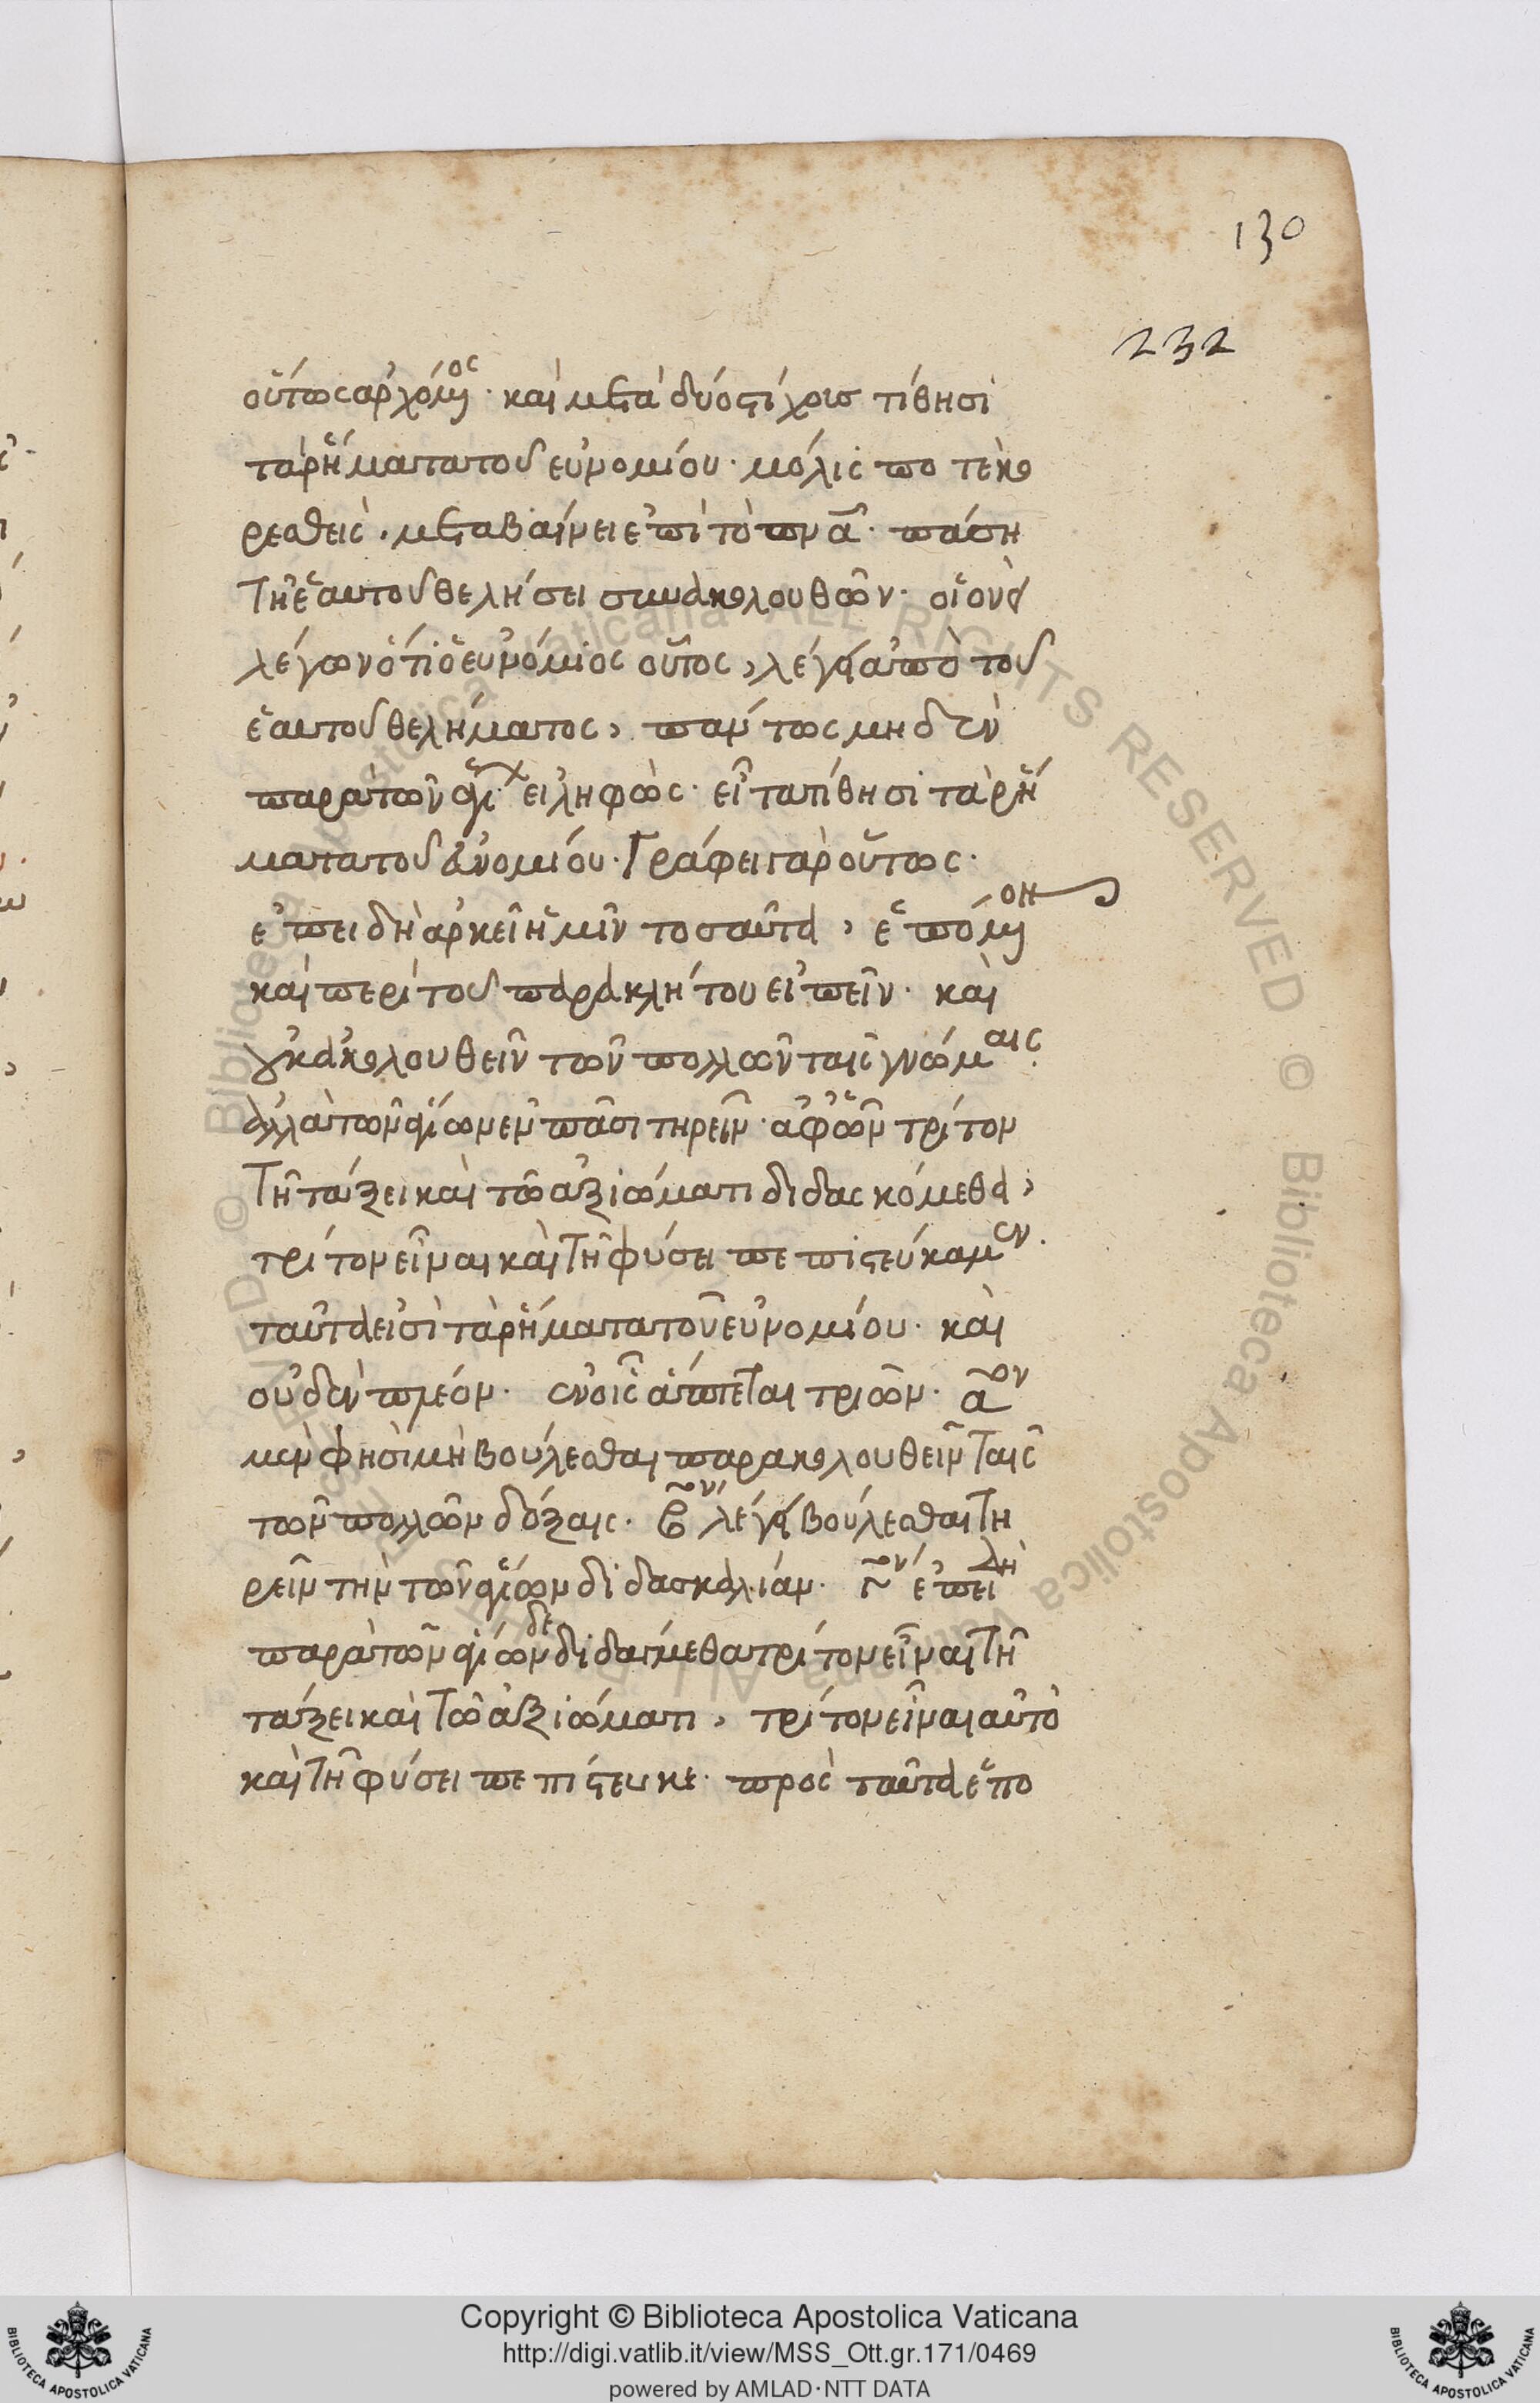 130
232
οὕτως ἀρχόμ(εν)ος· καὶ μετὰ δύο στίχοις τίθησι
τὰ ῥήματα τοῦ εὐνομίου· μόλις ποτε κο
ρεσθεὶς, μεταβαίνει ἐπὶ τὸ πνα· πάση
τῆ ἑαυτοῦ θελήσει συνακολουθῶν· οἱονεὶ
λέγων ὅτι ὁ εὐνόμιος οὗτος, λέγει ἀπὸ τοῦ
ἑαυτοῦ θελήματος, πάντως μηδὲν
παρὰ τῶν εἰληφὼς· εἶτα τίθησι τὰ ῥή
ματα τοῦ εὐνομίου· Γράφει γὰρ οὕτως·
ἐπειδὴ ἀρκεῖ ἡμῖν τοσαῦτα, ἑπόμ(εν)ον
καὶ περὶ τοῦ παρακλήτου εἰπεῖν· καὶ
οὐκ ἀκολουθεῖν τῶν πολλῶν ταῖς γνώμαις·
ἀλλὰ τῶν ἁγίων ἐν πᾶσι τηρεῖν· ἀφ' ὧν τρίτον
τῆ τάξει καὶ τῶ ἀξιώματι διδασκόμεθα,
τρίτον εἶναι καὶ τῆ φύσει πεπιστεύκαμεν·
ταῦτα εἰσὶ τὰ ῥήματα τοῦ εὐνομίου· καὶ
οὐδὲν πλέον· ἐν οἷς ἅπτεται τριῶν· α ον
μὲν φησὶ μὴ βούλεσθαι παρακολουθεῖν ταῖς
τῶν πολλῶν δόξαις· β ον λέγει βούλεσθαι τη
ρεῖν τὴν τῶν ἁγίων διδασκαλίαν· γ ον ἐπειδὴ
παρὰ τῶν ἁγίων δὲ διδασκόμεθα τρίτον εἶναι τῆ
τάξει καὶ τῶ ἀξιώματι, τρίτον εἶναι αὐτὸ
καὶ τῆ φύσει πεπίστευκε· πρὸς ταῦτα ἕπο
Copyright © Biblioteca Apostolica Vaticana
http://digi.vatlib.it/view/MSS_Ott.gr.171/0469
powered by AMLAD·NTT DATA